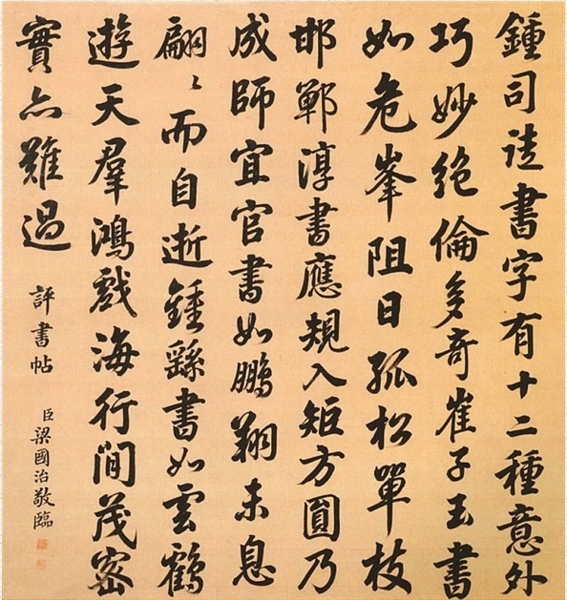 鍾司徒書字有十二種意外
巧妙绝倫多奇崔子玉書
如危峯阻日孤松單枝
邯鄲淳書應規入矩方圓乃
成師宜官書如鵬翔未息
翩〻而自逝鍾繇書如雲鶴
遊天羣鴻戲海行間茂密
實亦難過
評書帖
臣梁國治敬臨